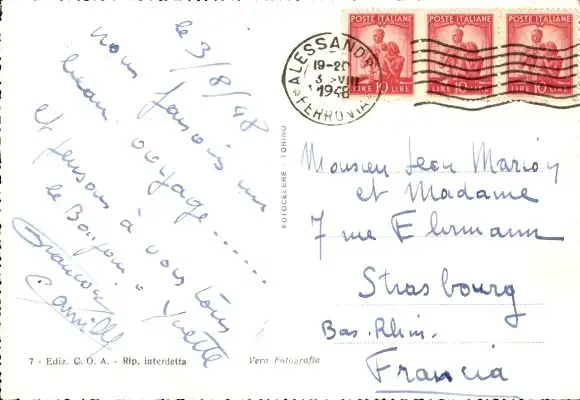 le 3/8/48
nous faisons un
beau voyage......
et pensons à vous tous
le Bonjour à Yvette
Francoy
Camille
POSTE ITALIANE
POSTE ITALIANE
POSTE ITALIANE
LIRE 10 LIRE
LIRE 10 LIRE
LIRE 10 LIRE
ALESSANDR
19-20
3 VIII
1948
FERROVIA
FOTOCELERE - TORINO
Monsieur Leon Marion
et Madame
7 rue Ehrmann
Strasbourg
Bas. Rhin.
Francia
7 - Ediz. C. O. A. - Rip. interdetta
Vera Fotografia